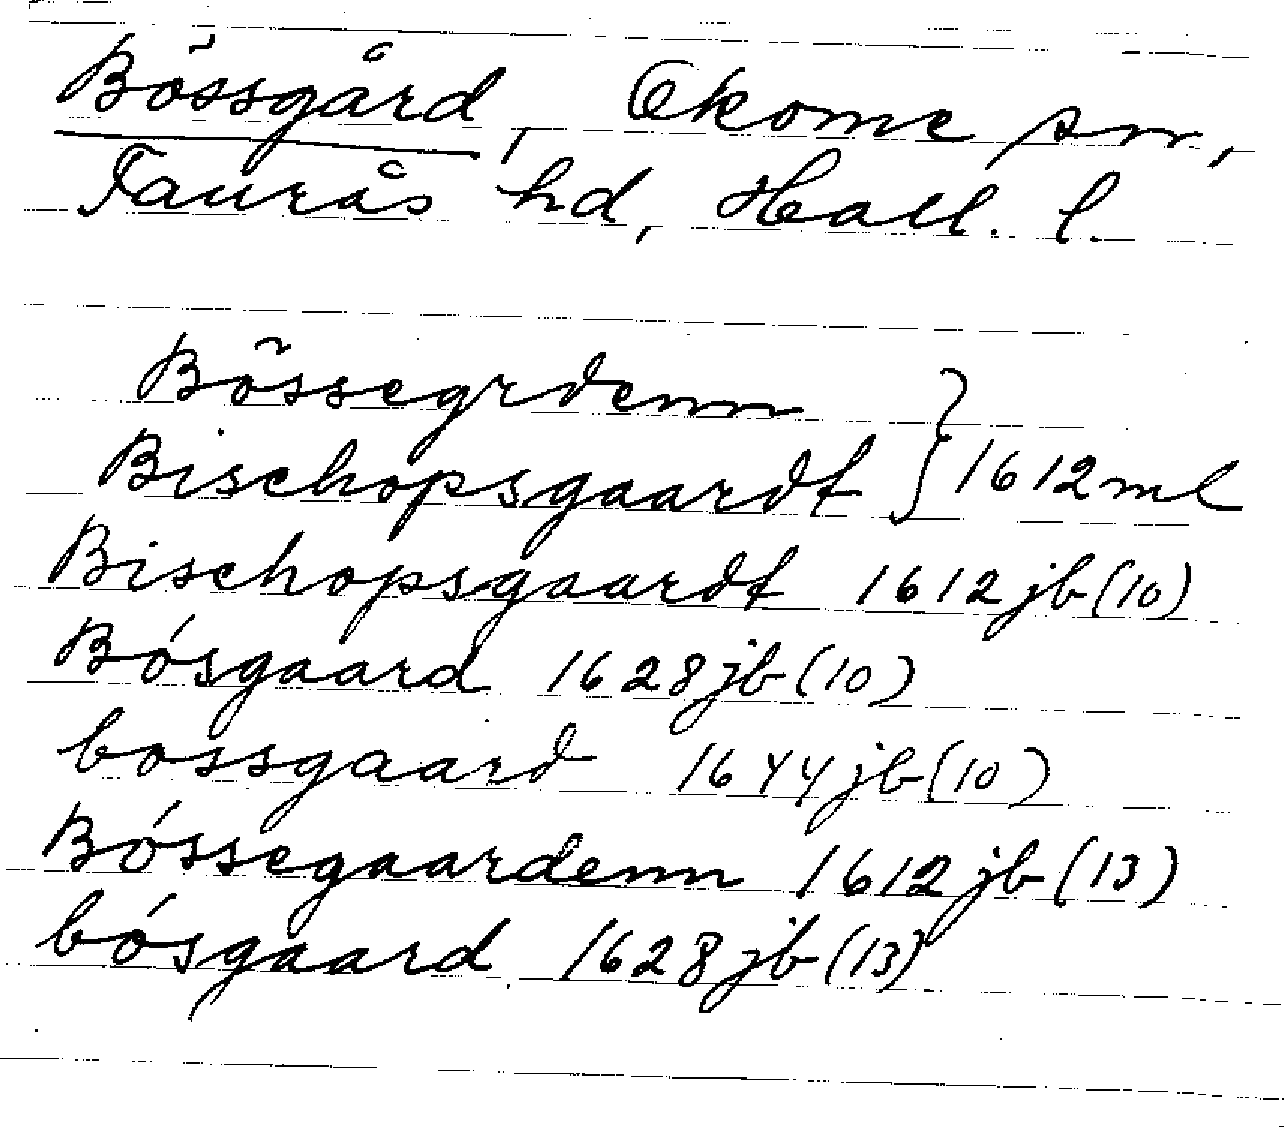 Bössgård, Okome sn,
Faurås hd, Hall. l.
Bössegrdenn
Bischopsgaardt } 1612 ml
Bischopsgaardt 1612 jb (10)
Bósgaard 1628 jb (10)
bossgaard 1644 jb (10)
Bóssegaardenn 1612 jb (13)
bósgaard 1628 jb (13)